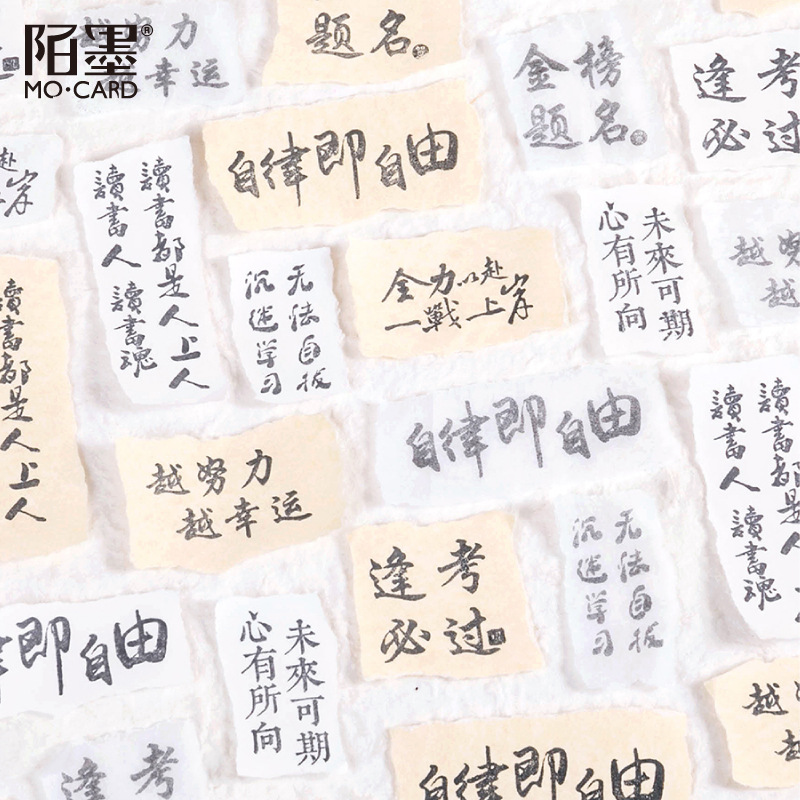 陌墨®
MO·CARD
努力
幸运
题名
金榜
题名
逢考
必过
自律即自由
赴
岸
讀書都是人上人
讀書人 讀書魂
无法自拔
沉迷学习
全力以赴
一戰上岸
未來可期
心有所向
越努
越
讀書都是人上人
自律即自由
讀書都是人上人
讀書人 讀書魂
越努力
越幸运
逢考
必过
无法自拔
沉迷学习
即自由
未來可期
心有所向
越努
越
逢考
自律即自由